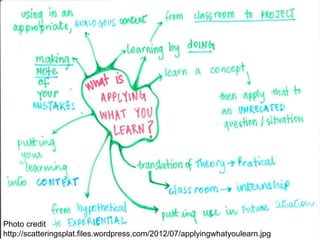 using in an
appropriate, ANALOGOUS context
from classroom to PROJECT
Learning by DOING
making
NOTE
of
YOUR
MISTAKES
learn a concept,
then apply that to
an UNRELATED
question / situation
WHAT IS
APPLYING
WHAT YOU
LEARN?
putting
your
learning
into CONTEXT
translation of Theory → Pratical
classroom → internship
from hypothetical
to EXPERIENTIAL
putting use in Future Situations.
Photo credit
http://scatteringsplat.files.wordpress.com/2012/07/applyingwhatyoulearn.jpg